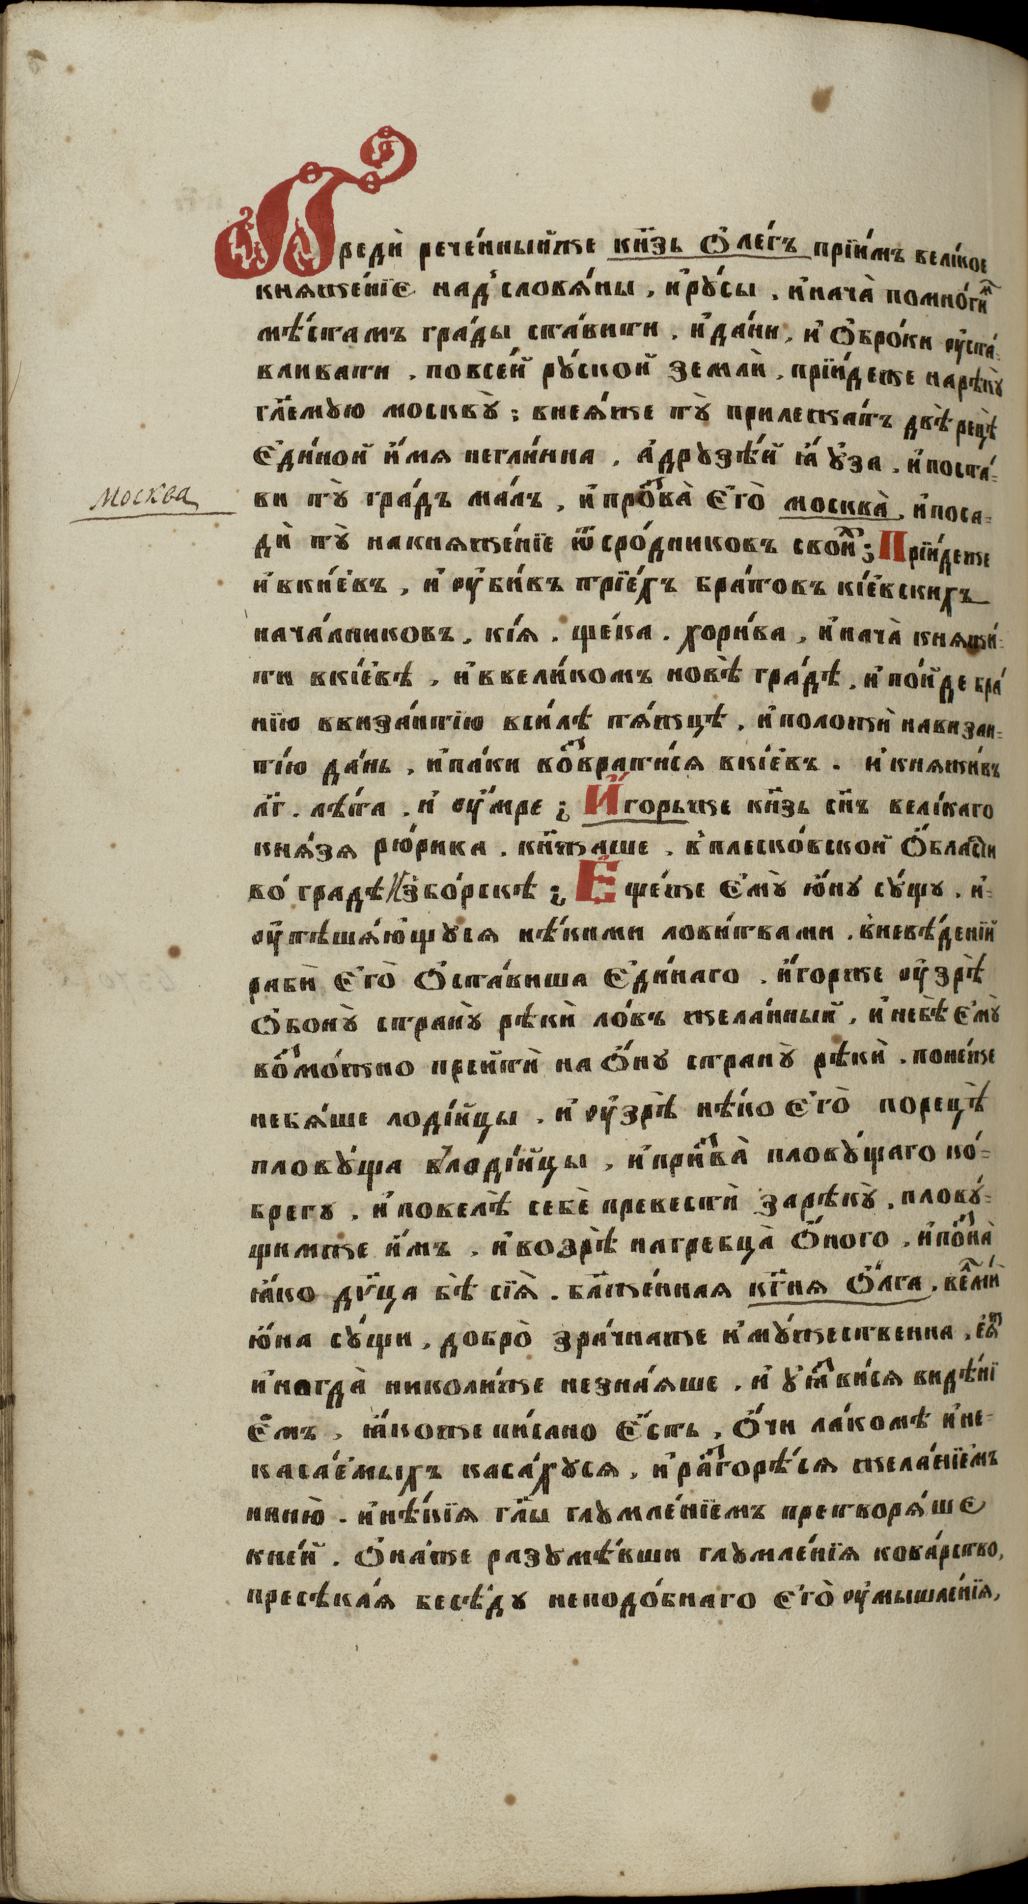 Предѝ рече́нныйже кн҃зь Ѻле́гъ прїи́мъ вели́кое
княже́нїе над̾словя́ны, и҆ру́сы, и҆нача̀ помно́гиⷨ
мѣ́стамъ гра́ды ста́вити, и҆да́ни, и҆ Ѻ҆бро́ки ᲂу҆ста́-
вливати, повсе́й ру́ской землѝ, прїи́деже нарѣкꙋ̀
гл҃емую москвꙋ̀; внея́же тꙋ̀ прилежа́тъ двѣ̀ рецѣ̀
Е҆ди́ной и҆́мя негли́нна, а҆друзѣ́й ꙗ҆́ ᲂу҆за, и҆поста́-
Москва
ви тꙋ̀ гра́дъ ма́лъ, и҆проⷥва̀ Е҆гѡ̀ москва̀, и҆поса-
дѝ тꙋ̀ накняже́нїе ѿсро́дниковъ своиⷯ; Прїи́деже
и҆вки́евъ, и҆ ᲂу҆би́въ трїе́хъ бра́товъ кі́евскихъ
нача́лниковъ, кі́я, ще́ка, хори́ва, и҆нача̀ княжи́-
ти вкі́евѣ, и҆ввели́комъ новѣ̀ гра́дѣ, и҆по́йде бра́
нїю ввиза́нтїю вси́лѣ тя́жцѣ, и҆положѝ навизан-
ті́ю да́нь, и҆па́ки воⷥврати́ся вкі́евъ. и҆княжи́въ
л҃г. лѣ́та. и҆ ᲂу҆́мре; И҆́горьже кн҃зь сн҃ъ вели́каго
кня́зя рю́рика. кн҃жаше. в̾плеско́вской Ѻ҆́блаⷭ҇ти
во́ градѣ̀ и҆збо́рскѣ; Е҆ще́же Е҆мꙋ̀ ю҆́ну су́щу. и҆-
ᲂу҆тѣша́ющуся нѣ́кими лови́твами. в̾невѣ́денїй
рабѝ Е҆гѡ̀ Ѻ҆ста́виша Е҆ди́наго. и҆́горже ᲂу҆зрѣ̀
Ѻ҆бонꙋ̀ странꙋ̀ рѣкѝ ло́въ жела́нный, и҆небѣ̀ Е҆мꙋ̀
воⷥмо́жно прейтѝ на Ѻ҆́ну странꙋ̀ рѣкѝ. поне́же
небя́ше лоді́йцы. и҆ ᲂу҆зрѣ̀ нѣ́ко Е҆гѡ̀ порецѣ̀
плову́ща в̾лоді́йцы, и҆приⷥва̀ плову́щаго ко́-
брегу, и҆повелѣ̀ себѐ превестѝ зарѣкꙋ̀, плову́-
щимже и҆́мъ, и҆возрѣ̀ нагребца̀ Ѻ҆́ного, и҆поⷥна̀
ꙗ҆́ко дв҃ца бѣ̀ сїя̀. бл҃же́нная кн҃гня Ѻ҆́лга. веⷧ҇мѝ
ю҆́на су́щи, добрѡ̀ зра́чнаже и҆му́жественна, еꙗ҆ⷤ
и҆ногда̀ николи́же незна́яше. и҆ ᲂу҆ꙗ҆ⷥви́ся видѣ́нї
Е҆мъ, ꙗ҆́коже пи́сано Е҆́сть, Ѻ҆́чи ла́комѣ и҆не-
каса́емыхъ каса́хуся, и҆раⷥгорѣ́ся жела́нїемъ
нанню̀. и҆нѣ́кїя гл҃ы глумле́нїемъ претворя́ше
кне́й. Ѻ҆на́же разумѣ́вши глумле́нїя кова́рство,
пресѣка́я бесѣ́ду неподо́бнаго Е҆гѡ̀ ᲂу҆мышле́нїя,